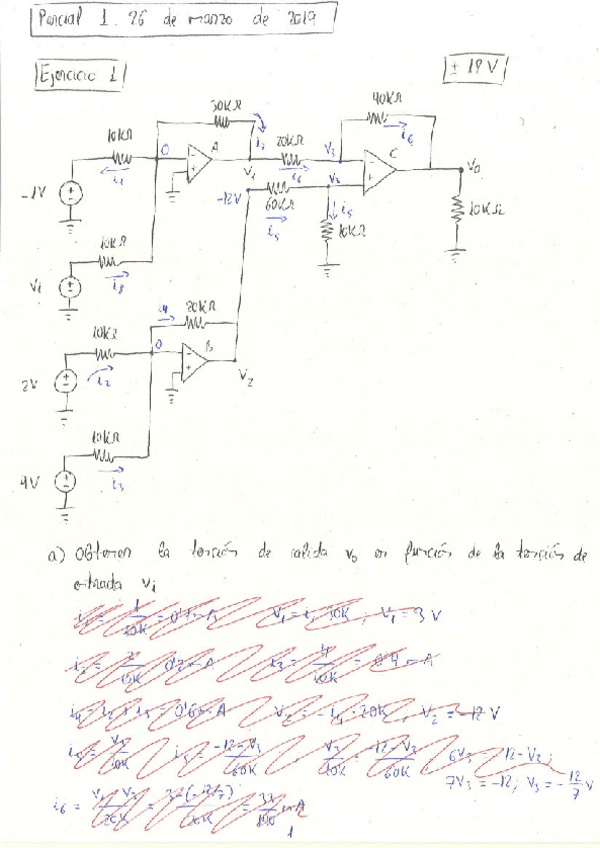 Parcial 1 26 de marzo de 2019
Ejercicio 1
± 18 V
30KΩ
40KΩ
10KΩ
A
i7
20KΩ
V3
i6
C
0
V1
i6
V0
-1V
i1
-12V
V3
60KΩ
i5
i5
10KΩ
10KΩ
10KΩ
Vi
i8
i4
20KΩ
10KΩ
0
B
2V
i2
V2
10KΩ
4V
i3
a) Obtener la tensión de salida v0 en función de la tensión de
entrada vi
i1 = 1/10K = 0'1 mA V1 = i1 · 30K ; V1 = 3 V
i2 = 2/10K = 0'2 mA i3 = 4/10K = 0'4 mA
i4 = i2 + i3 = 0'6 mA V2 = - i4 · 20K ; V2 = -12 V
i5 = V3/10K i5 = -12 - V3/60K V3/10K = -12 - V3/60K 6V3 = -12 - V3 ;
7V3 = -12; V3 = - 12/7 V
i6 = V1 - V3/20K = 3 - (-12/7)/20K = 33/140 mA
1